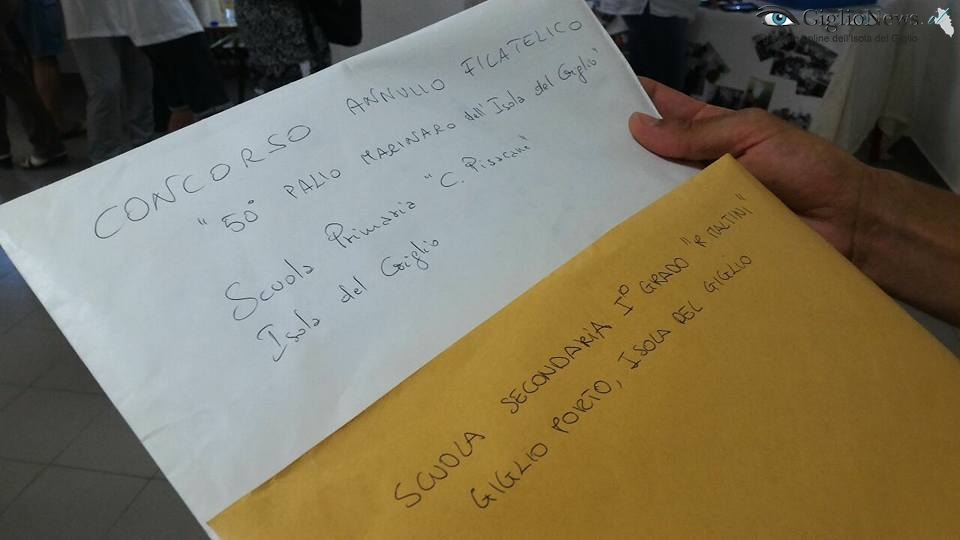 GiglioNews
online dell'isola del Giglio
CONCORSO ANNULLO FILATELICO
"50° PALIO MARINARO dell'Isola del Giglio"
Scuola Primaria "C. Pisacane"
Isola del Giglio
SCUOLA SECONDARIA I° GRADO "R MALTINI"
GIGLIO PORTO, ISOLA DEL GIGLIO